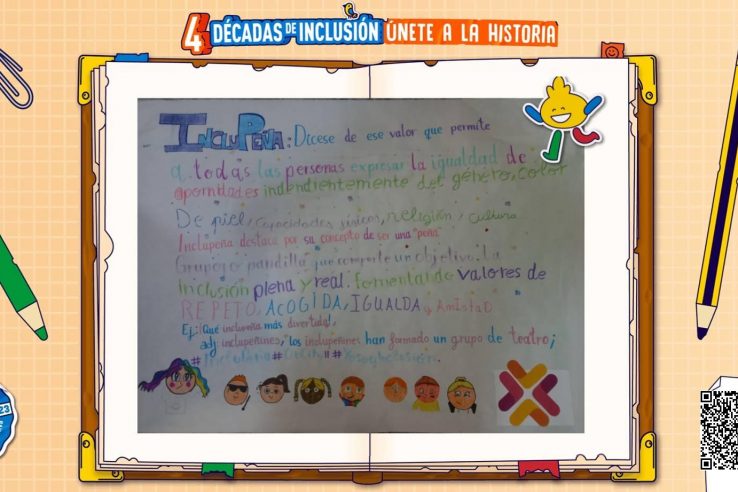 4 DÉCADAS DE INCLUSIÓN ÚNETE A LA HISTORIA
INCLUPEÑA: Dícese de ese valor que permite
a todas las personas expresar la igualdad de
oportidades indendientemente del género, color
De piel, capacidades físicas, religión, cultura
Inclupeña destaca por su concepto de ser una "peña"
Grupo o pandilla que comparte un objetivo. La
inclusión plena y real. Fomentando valores de
REPETO, ACOGIDA, IGUALDA y AmistaD.
Ej: ¡Qué inclupeña más divertida!,
adj: incluperines, "los incluperines han formado un grupo de teatro;